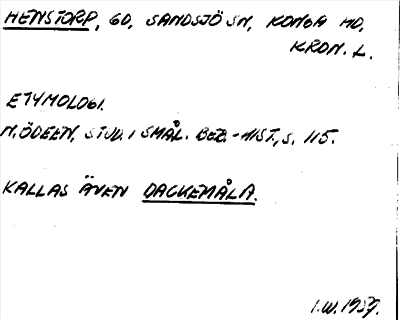 HENSTORP, GD, SANDSJÖ SN, KONGA HD,
KRON. L.
ETYMOLOGI.
N. ÖDEEN, STUD. I SMÅL. BEB.-HIST., S. 115.
KALLAS ÄVEN DACKEMÅLA.
I.W. 1939.